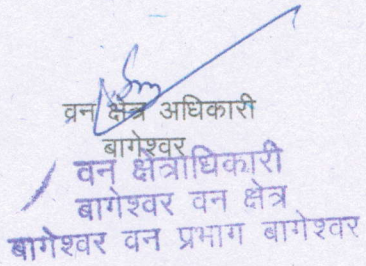 वन क्षेत्र अधिकारी
बागेश्वर
वन क्षेत्राधिकारी
बागेश्वर वन क्षेत्र
बागेश्वर वन प्रभाग बागेश्वर